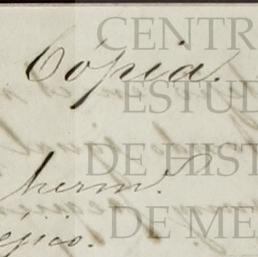 CENTR
Cópia.
ESTUD
DE HIST
herm.
DE ME
ejico.